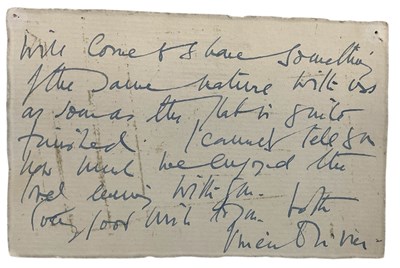 will come & share something
of the same nature with us
as soon as the flat is quite
finished. I cannot tell you
how much we enjoyed the
evening with you.
Every good wish to you both
Vivien Olivier -